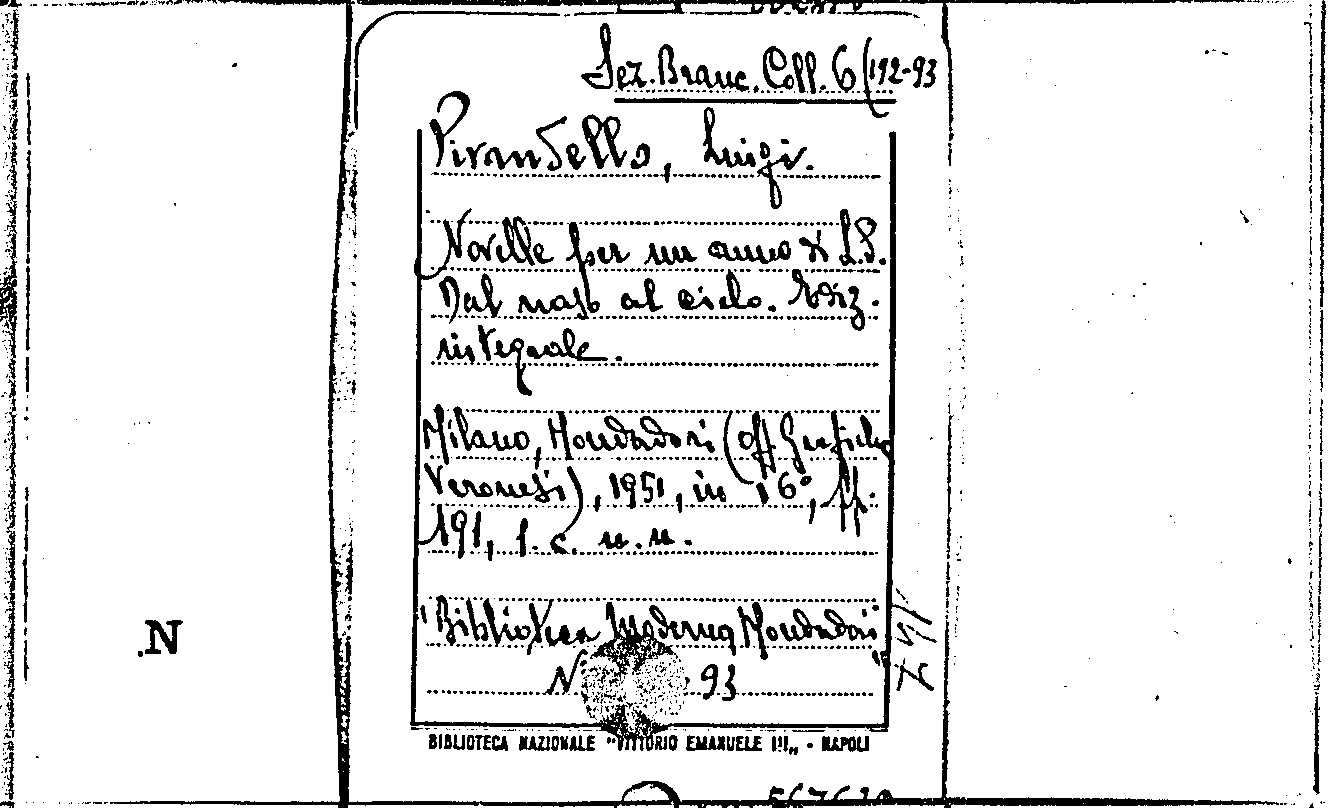 Sez. Branc. Coll. 6 (192-93
Pirandello, Luigi.
Novelle per un anno di L.P.
Dal naso al cielo. Ediz.
integrale.
Milano, Mondadori (Off. Grafiche
Veronesi), 1951, in 16°, pp.
191, 1. c. n. n.
"Biblioteca Moderna Mondadori"
N 93
BIBLIOTECA NAZIONALE "VITTORIO EMANUELE III„ - NAPOLI
.N